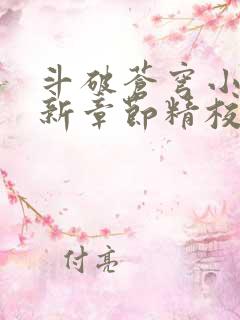 斗破蒼穹小
新章節精校
付亮